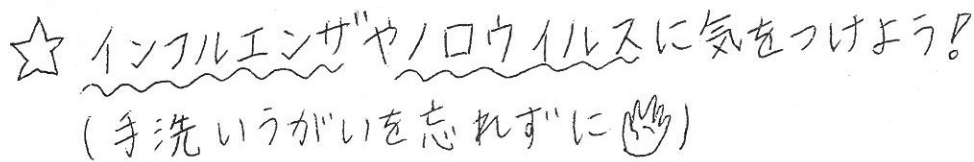 ☆ インフルエンザやノロウイルスに気をつけよう!
(手洗いうがいを忘れずに)